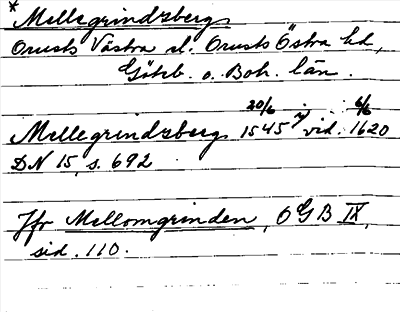 * Mellegrindzberg
Orusts Västra el. Orusts Östra hd,
Göteb. o. Boh. län.
20/6 6/6
Mellegrindzberg 1545 vid. 1620
DN 15, s. 692
Jfr Mellomgrinden, OGB IX,
sid. 110.